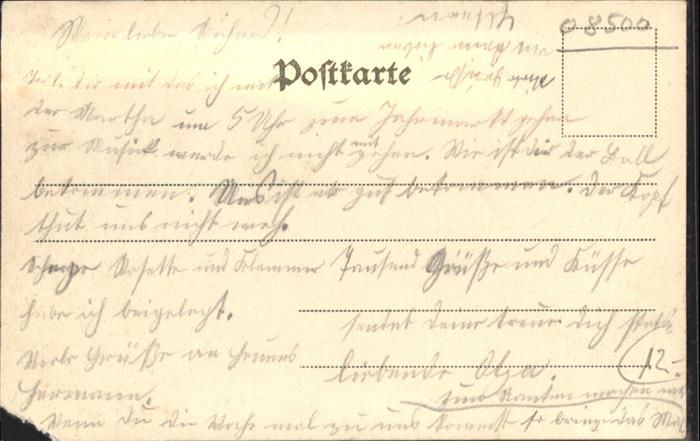 Mein lieber Richard!
08500
Postkarte
Teile dir mit das ich mit
der Martha um 5 Uhr zum Jahrmarkt gehen
zur Musik werde ich nicht mit gehen. Wie ist dir der Ball
bekommen. Uns ist er gut bekommen. Der Kopf
thut uns nicht weh.
Rosette und Klemmer
habe ich beigelegt.
Tausend Grüße und Küsse
sendet deine treue dich stets
liebende Olga.
12
Viele Grüße an Herrn
Hermann.
Wenn du die Woche mal zu uns kommst so bringe das